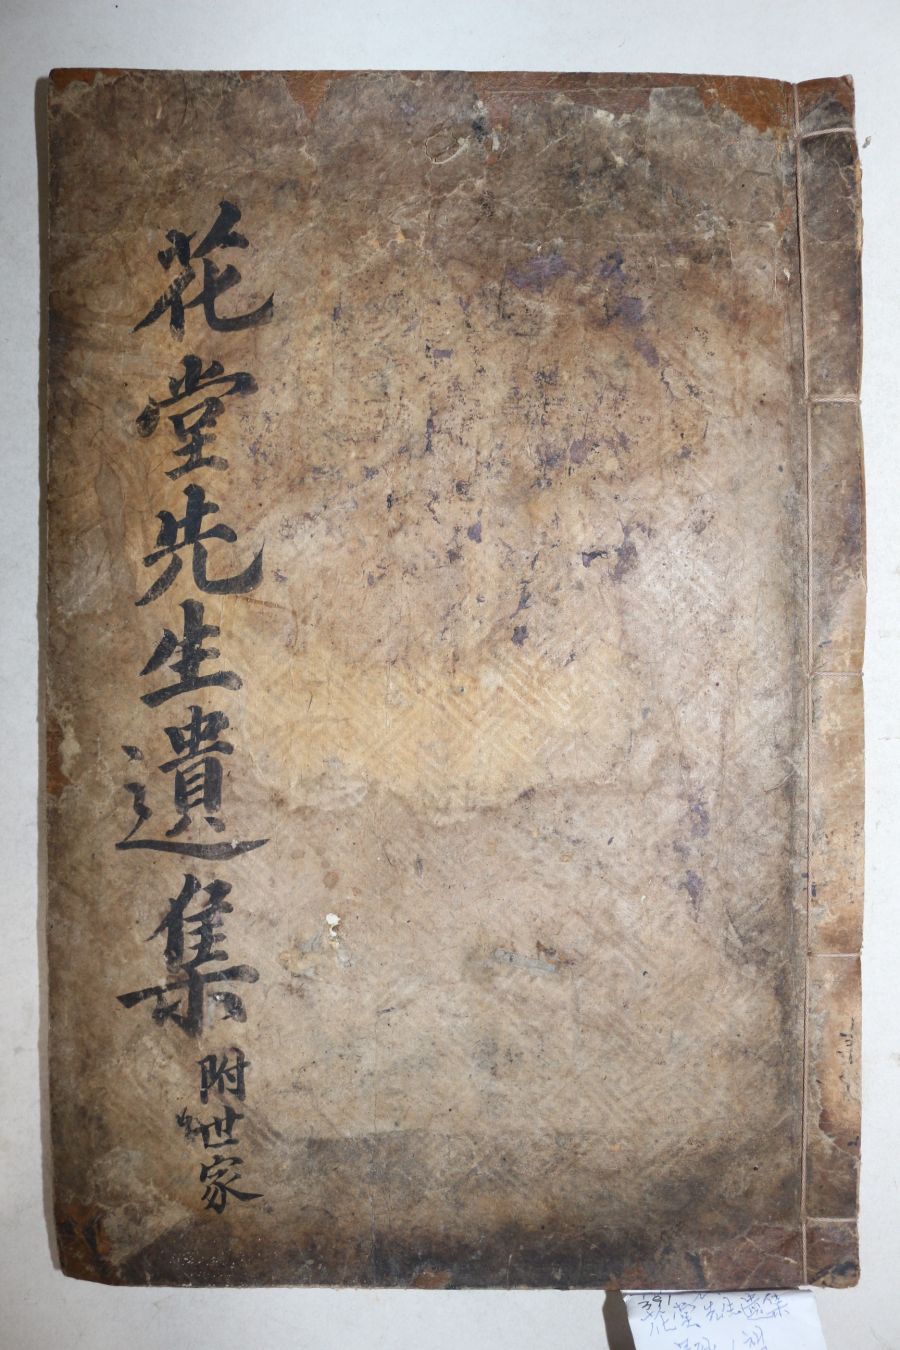 花堂先生遺集
附世家
花堂先生遺集